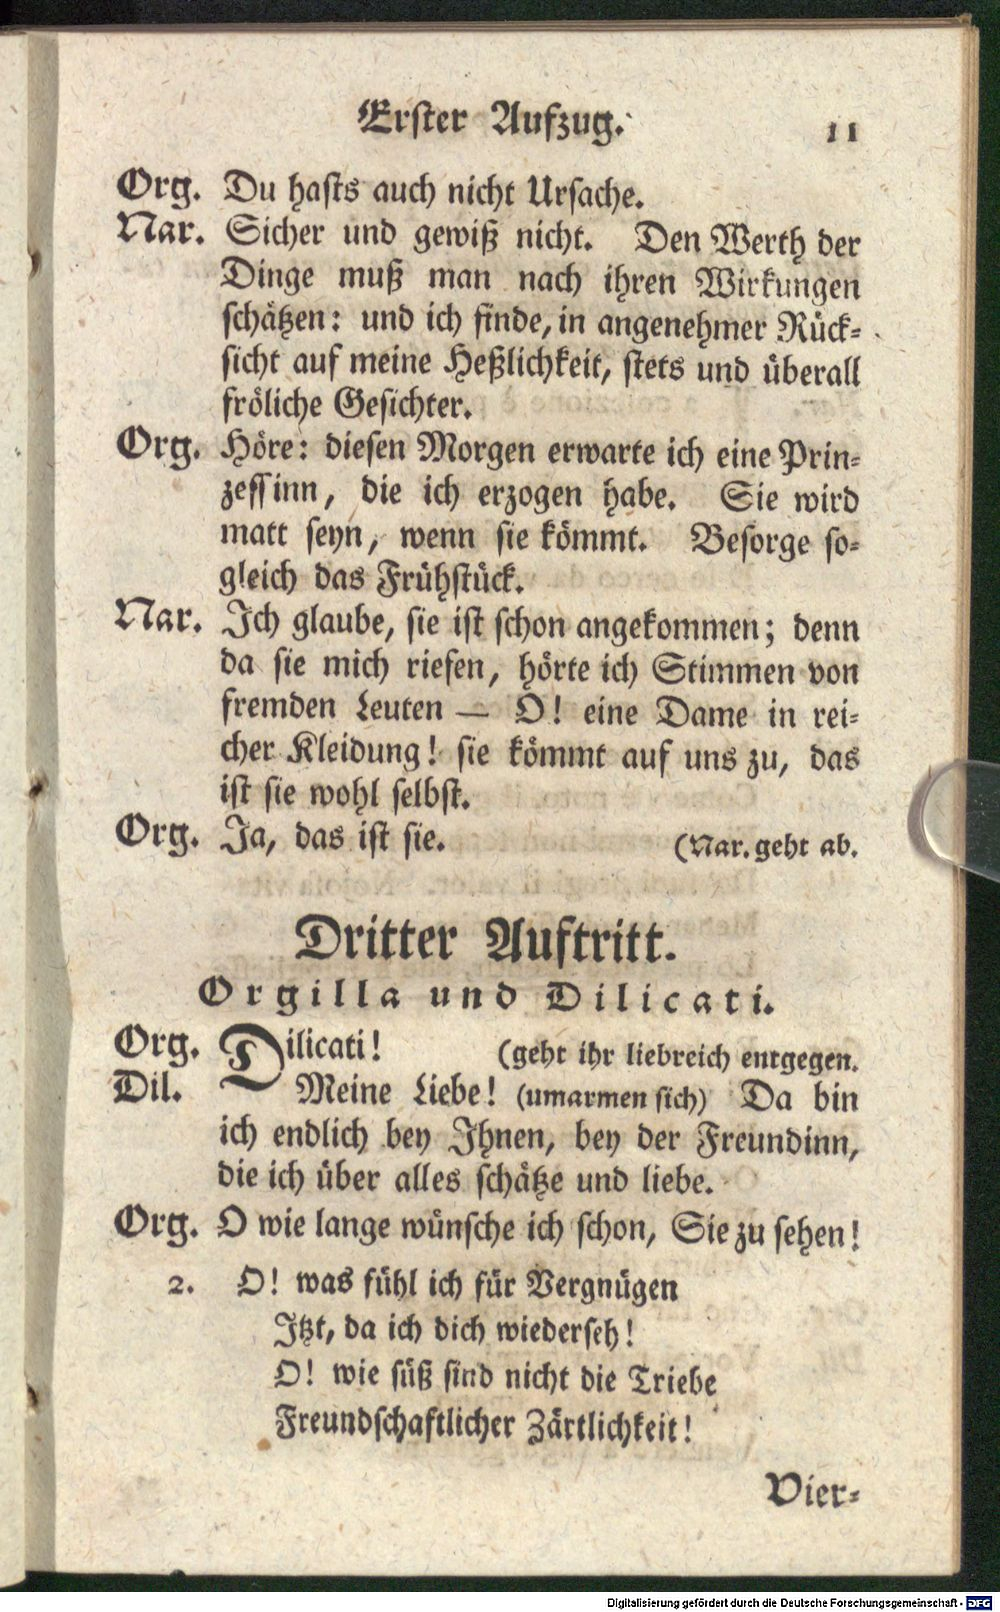 Erster Aufzug. 11
Org. Du hasts auch nicht Ursache.
Nar. Sicher und gewiß nicht. Den Werth der
Dinge muß man nach ihren Wirkungen
schätzen: und ich finde, in angenehmer Rück-
sicht auf meine Heßlichkeit, stets und überall
fröliche Gesichter.
Org. Höre: diesen Morgen erwarte ich eine Prin-
zessinn, die ich erzogen habe. Sie wird
matt seyn, wenn sie kömmt. Besorge so-
gleich das Frühstück.
Nar. Ich glaube, sie ist schon angekommen; denn
da sie mich riefen, hörte ich Stimmen von
fremden Leuten — O! eine Dame in rei-
cher Kleidung! sie kömmt auf uns zu, das
ist sie wohl selbst.
Org. Ja, das ist sie. (Nar. geht ab.
Dritter Auftritt.
Orgilla und Dilicati.
Org. Dilicati! (geht ihr liebreich entgegen.
Dil. Meine Liebe! (umarmen sich) Da bin
ich endlich bey Ihnen, bey der Freundinn,
die ich über alles schätze und liebe.
Org. O wie lange wünsche ich schon, Sie zu sehen!
2. O! was fühl ich für Vergnügen
Itzt, da ich dich wiederseh!
O! wie süß sind nicht die Triebe
Freundschaftlicher Zärtlichkeit!
Vier-
Digitalisierung gefördert durch die Deutsche Forschungsgemeinschaft - DFG